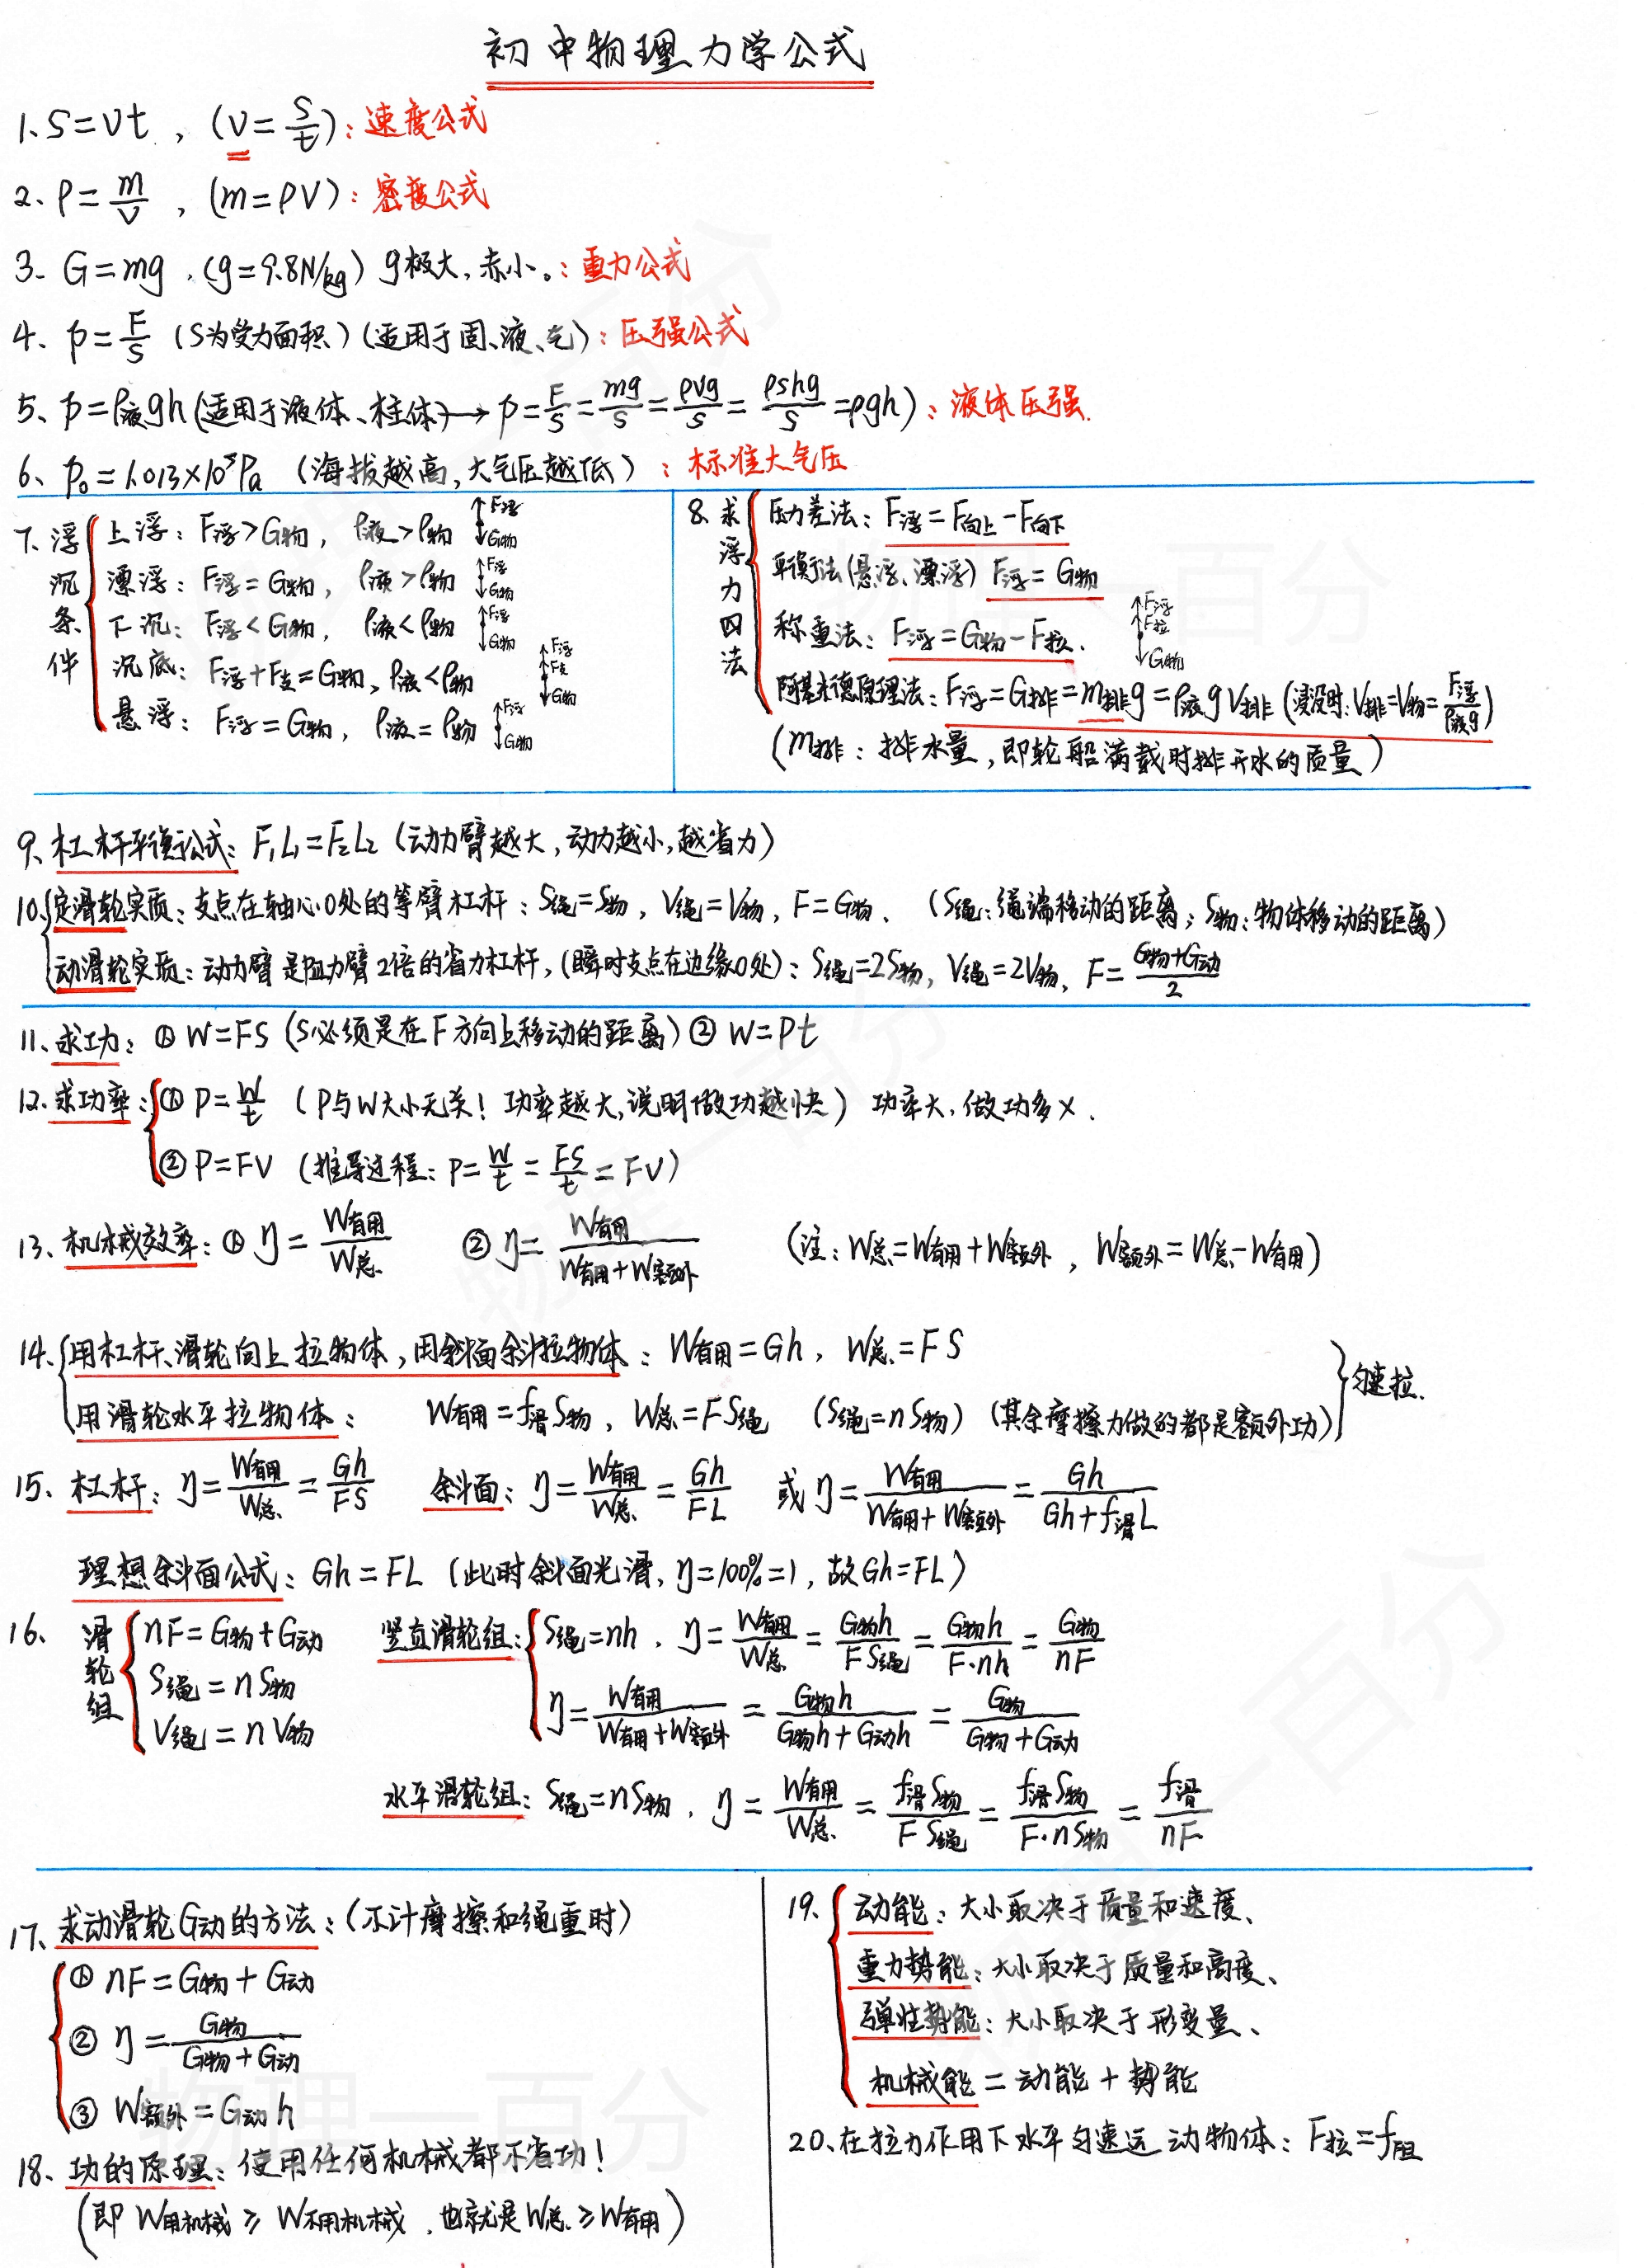 初中物理力学公式
1、S=vt，(v=S/t)：速度公式
2、ρ=m/V，(m=ρV)：密度公式
3、G=mg，(g=9.8N/kg) g极大，赤小。：重力公式
4、p=F/S (S为受力面积)(适用于固、液、气)：压强公式
5、p=ρ液gh(适用于液体、柱体)→p=F/S=mg/S=ρVg/S=ρShg/S=ρgh)：液体压强.
6、p₀=1.013×10⁵Pa (海拔越高,大气压越低)：标准大气压
7、浮沉条件
上浮：F浮>G物，ρ液>ρ物 F浮 G物
漂浮：F浮=G物，ρ液>ρ物 F浮 G物
下沉：F浮<G物，ρ液<ρ物 F浮 G物
沉底：F浮+F支=G物、ρ液<ρ物 F浮 F支 G物
悬浮：F浮=G物，ρ液=ρ物 F浮 G物
8、求浮力四法
压力差法：F浮=F向上-F向下
平衡法(悬浮、漂浮) F浮=G物
称重法：F浮=G物-F拉. F浮 F拉 G物
阿基米德原理法：F浮=G排=m排g=ρ液gV排 (浸没时:V排=V物=F浮/ρ液g)
(m排：排水量,即轮船满载时排开水的质量)
9、杠杆平衡公式：F₁L₁=F₂L₂ (动力臂越大,动力越小,越省力)
10、定滑轮实质：支点在轴心O处的等臂杠杆：S绳=S物，V绳=V物，F=G物、(S绳:绳端移动的距离；S物:物体移动的距离)
动滑轮实质：动力臂是阻力臂2倍的省力杠杆,(瞬时支点在边缘O处)：S绳=2S物，V绳=2V物、F=(G物+G动)/2
11、求功：① W=FS (S必须是在F方向上移动的距离) ② W=Pt
12、求功率：① P=W/t (P与W大小无关！功率越大,说明做功越快) 功率大,做功多×.
② P=FV (推导过程：P=W/t=FS/t=FV)
13、机械效率：① η=W有用/W总 ② η=W有用/(W有用+W额外) (注：W总=W有用+W额外，W额外=W总-W有用)
14、用杠杆、滑轮向上拉物体,用斜面斜拉物体：W有用=Gh，W总=FS
用滑轮水平拉物体：W有用=f滑S物，W总=FS绳 (S绳=nS物)(其余摩擦力做的都是额外功) 匀速拉.
15、杠杆：η=W有用/W总=Gh/FS 斜面：η=W有用/W总=Gh/FL 或η=W有用/(W有用+W额外)=Gh/(Gh+f滑L)
理想斜面公式：Gh=FL (此时斜面光滑,η=100%=1，故Gh=FL)
16、滑轮组
nF=G物+G动
S绳=nS物
V绳=nV物
竖直滑轮组：S绳=nh，η=W有用/W总=G物h/FS绳=G物h/F·nh=G物/nF
η=W有用/(W有用+W额外)=G物h/(G物h+G动h)=G物/(G物+G动)
水平滑轮组：S绳=nS物，η=W有用/W总=f滑S物/FS绳=f滑S物/F·nS物=f滑/nF
17、求动滑轮G动的方法：(不计摩擦和绳重时)
① nF=G物+G动
② η=G物/(G物+G动)
③ W额外=G动h
18、功的原理：使用任何机械都不省功！
(即W用机械≥W不用机械，也就是W总≥W有用)
19、动能：大小取决于质量和速度、
重力势能：大小取决于质量和高度、
弹性势能：大小取决于形变量、
机械能=动能+势能
20、在拉力作用下水平匀速运动物体：F拉=f阻
物理一百分